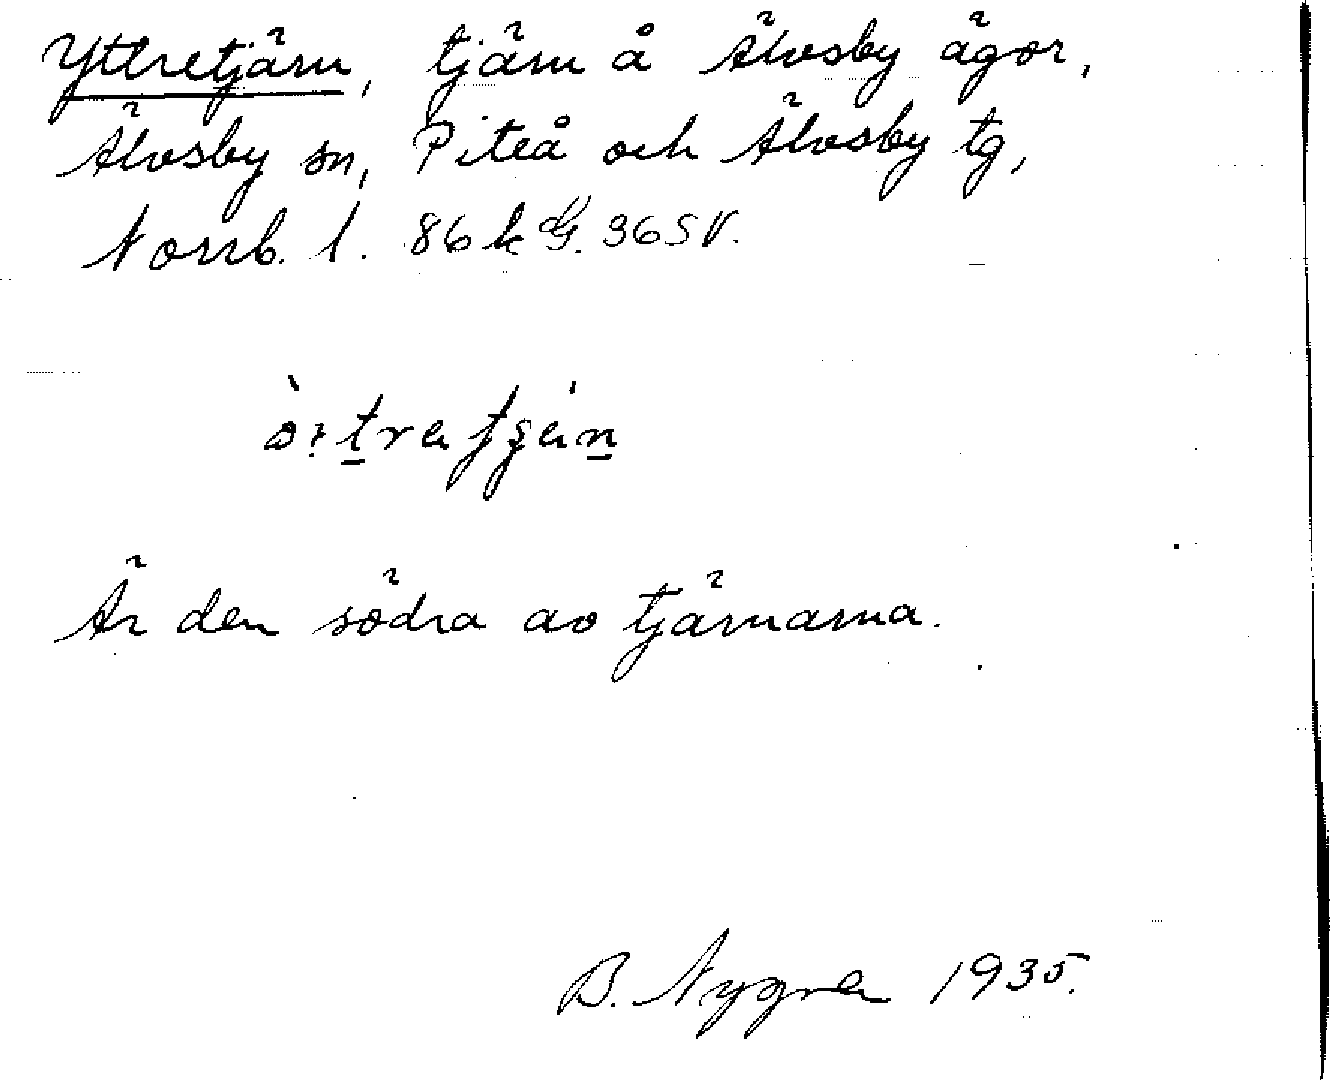 Yttretjärn, tjärn å Älvsby ägor,
Älvsby sn, Piteå och Älvsby tg,
Norrb. l. 86 k 36 SV.
Är den södra av tjärnarna.
B. Nygren 1935.